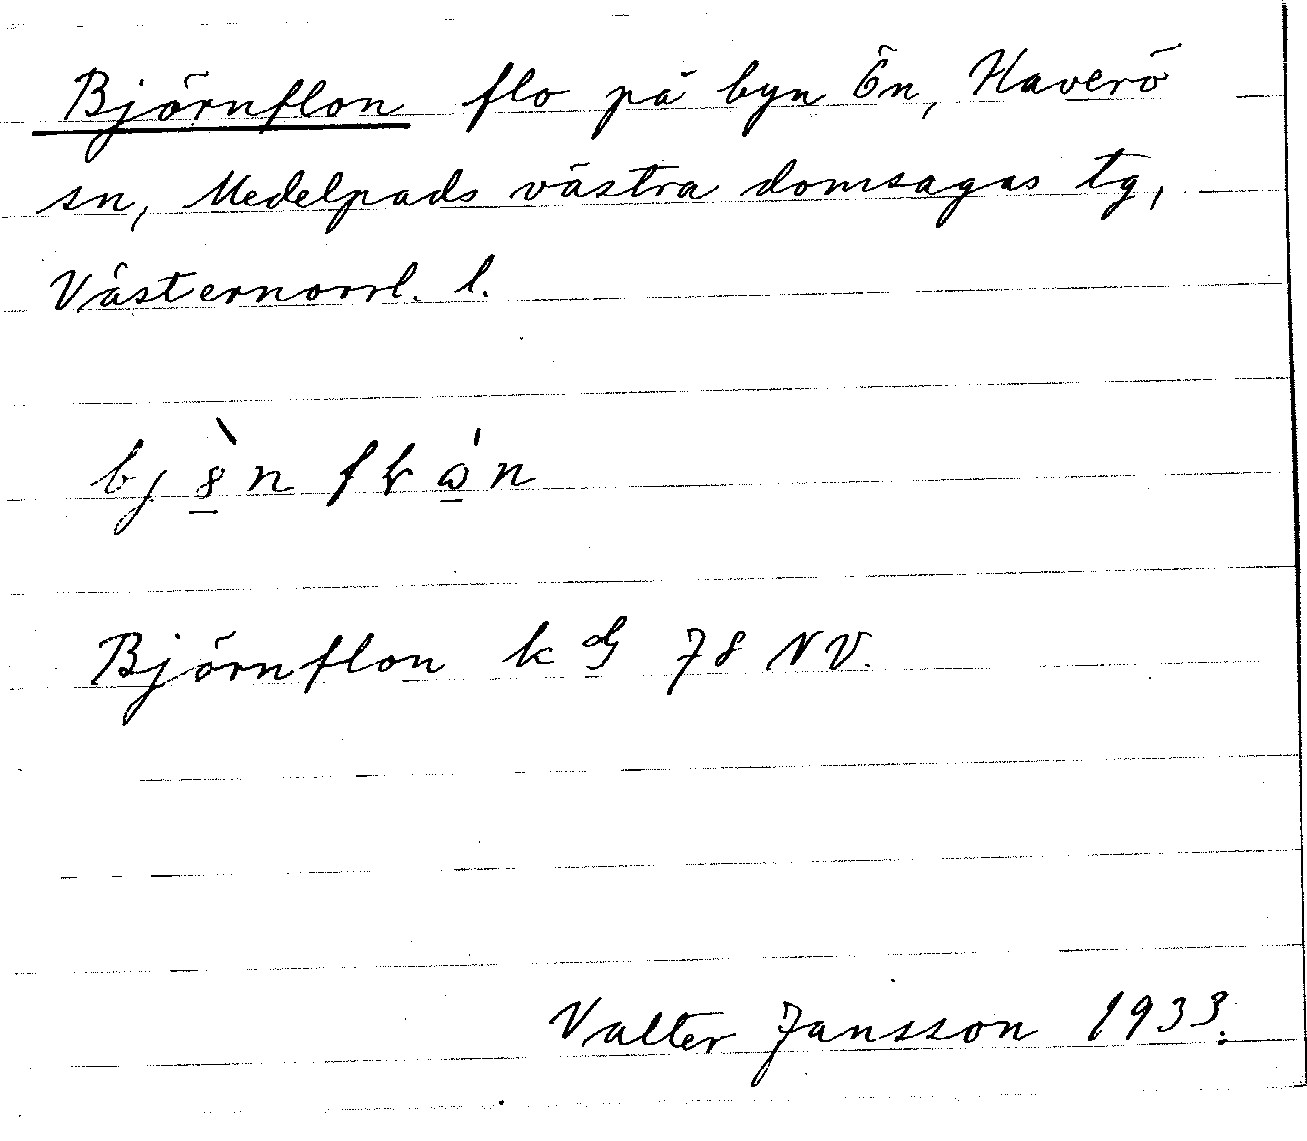 Björnflon flo på byn Ön, Haverö
sn, Medelpads västra domsagas tg,
Västernorrl. l.
Björnflon k 78 NV.
Valter Jansson 1933.